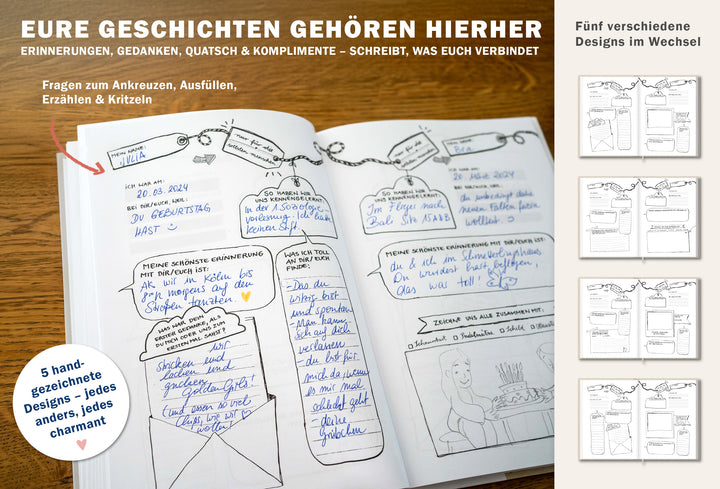 EURE GESCHICHTEN GEHÖREN HIERHER
ERINNERUNGEN, GEDANKEN, QUATSCH & KOMPLIMENTE – SCHREIBT, WAS EUCH VERBINDET
Fragen zum Ankreuzen, Ausfüllen,
Erzählen & Kritzeln
MEIN NAME:
JULIA
nur für die
coolsten Menschen
ICH WAR AM:
20.03.2024
BEI DIR/EUCH, WEIL:
DU GEBURTSTAG
HAST
SO HABEN WIR
UNS KENNENGELERNT:
In der
vorlesung. Ich hatte
keinen Stift
MEINE SCHÖNSTE ERINNERUNG
MIT DIR/EUCH IST:
Als wir in Köln bis
morgens auf den
Straßen tanzten.
WAS WAR DEIN
ERSTER GEDANKE, ALS
DU MICH ODER UNS ZUM
ERSTEN MAL SAHST?
wir
stricken und
lachen und
gucken
Golden Girls!
(und essen so viel
Chips, wie wir
wollen!
WAS ICH TOLL
AN DIR/EUCH
FINDE:
- Das du
lustig bist
und spontan
- Man kann
sich auf dich
verlassen
- du bist für
mich da, wenn
es mir mal
schlecht geht
- deine
Grübchen
nur für die
coolsten Menschen
MEIN NAME:
Bea
ICH WAR AM:
20. März 2024
BEI DIR/EUCH, WEIL:
du unbedingt deine
neuen
wolltest
SO HABEN WIR
UNS KENNENGELERNT:
Im Flieger nach
Bali Sitz 15A&B
MEINE SCHÖNSTE ERINNERUNG
MIT DIR/EUCH IST:
du & ich im Schmetterlingshaus.
Du wurdest
das was toll!
ZEICHNE UNS ALLE ZUSAMMEN MIT:
5 hand-
gezeichnete
Designs – jedes
anders, jedes
charmant
Fünf verschiedene
Designs im Wechsel